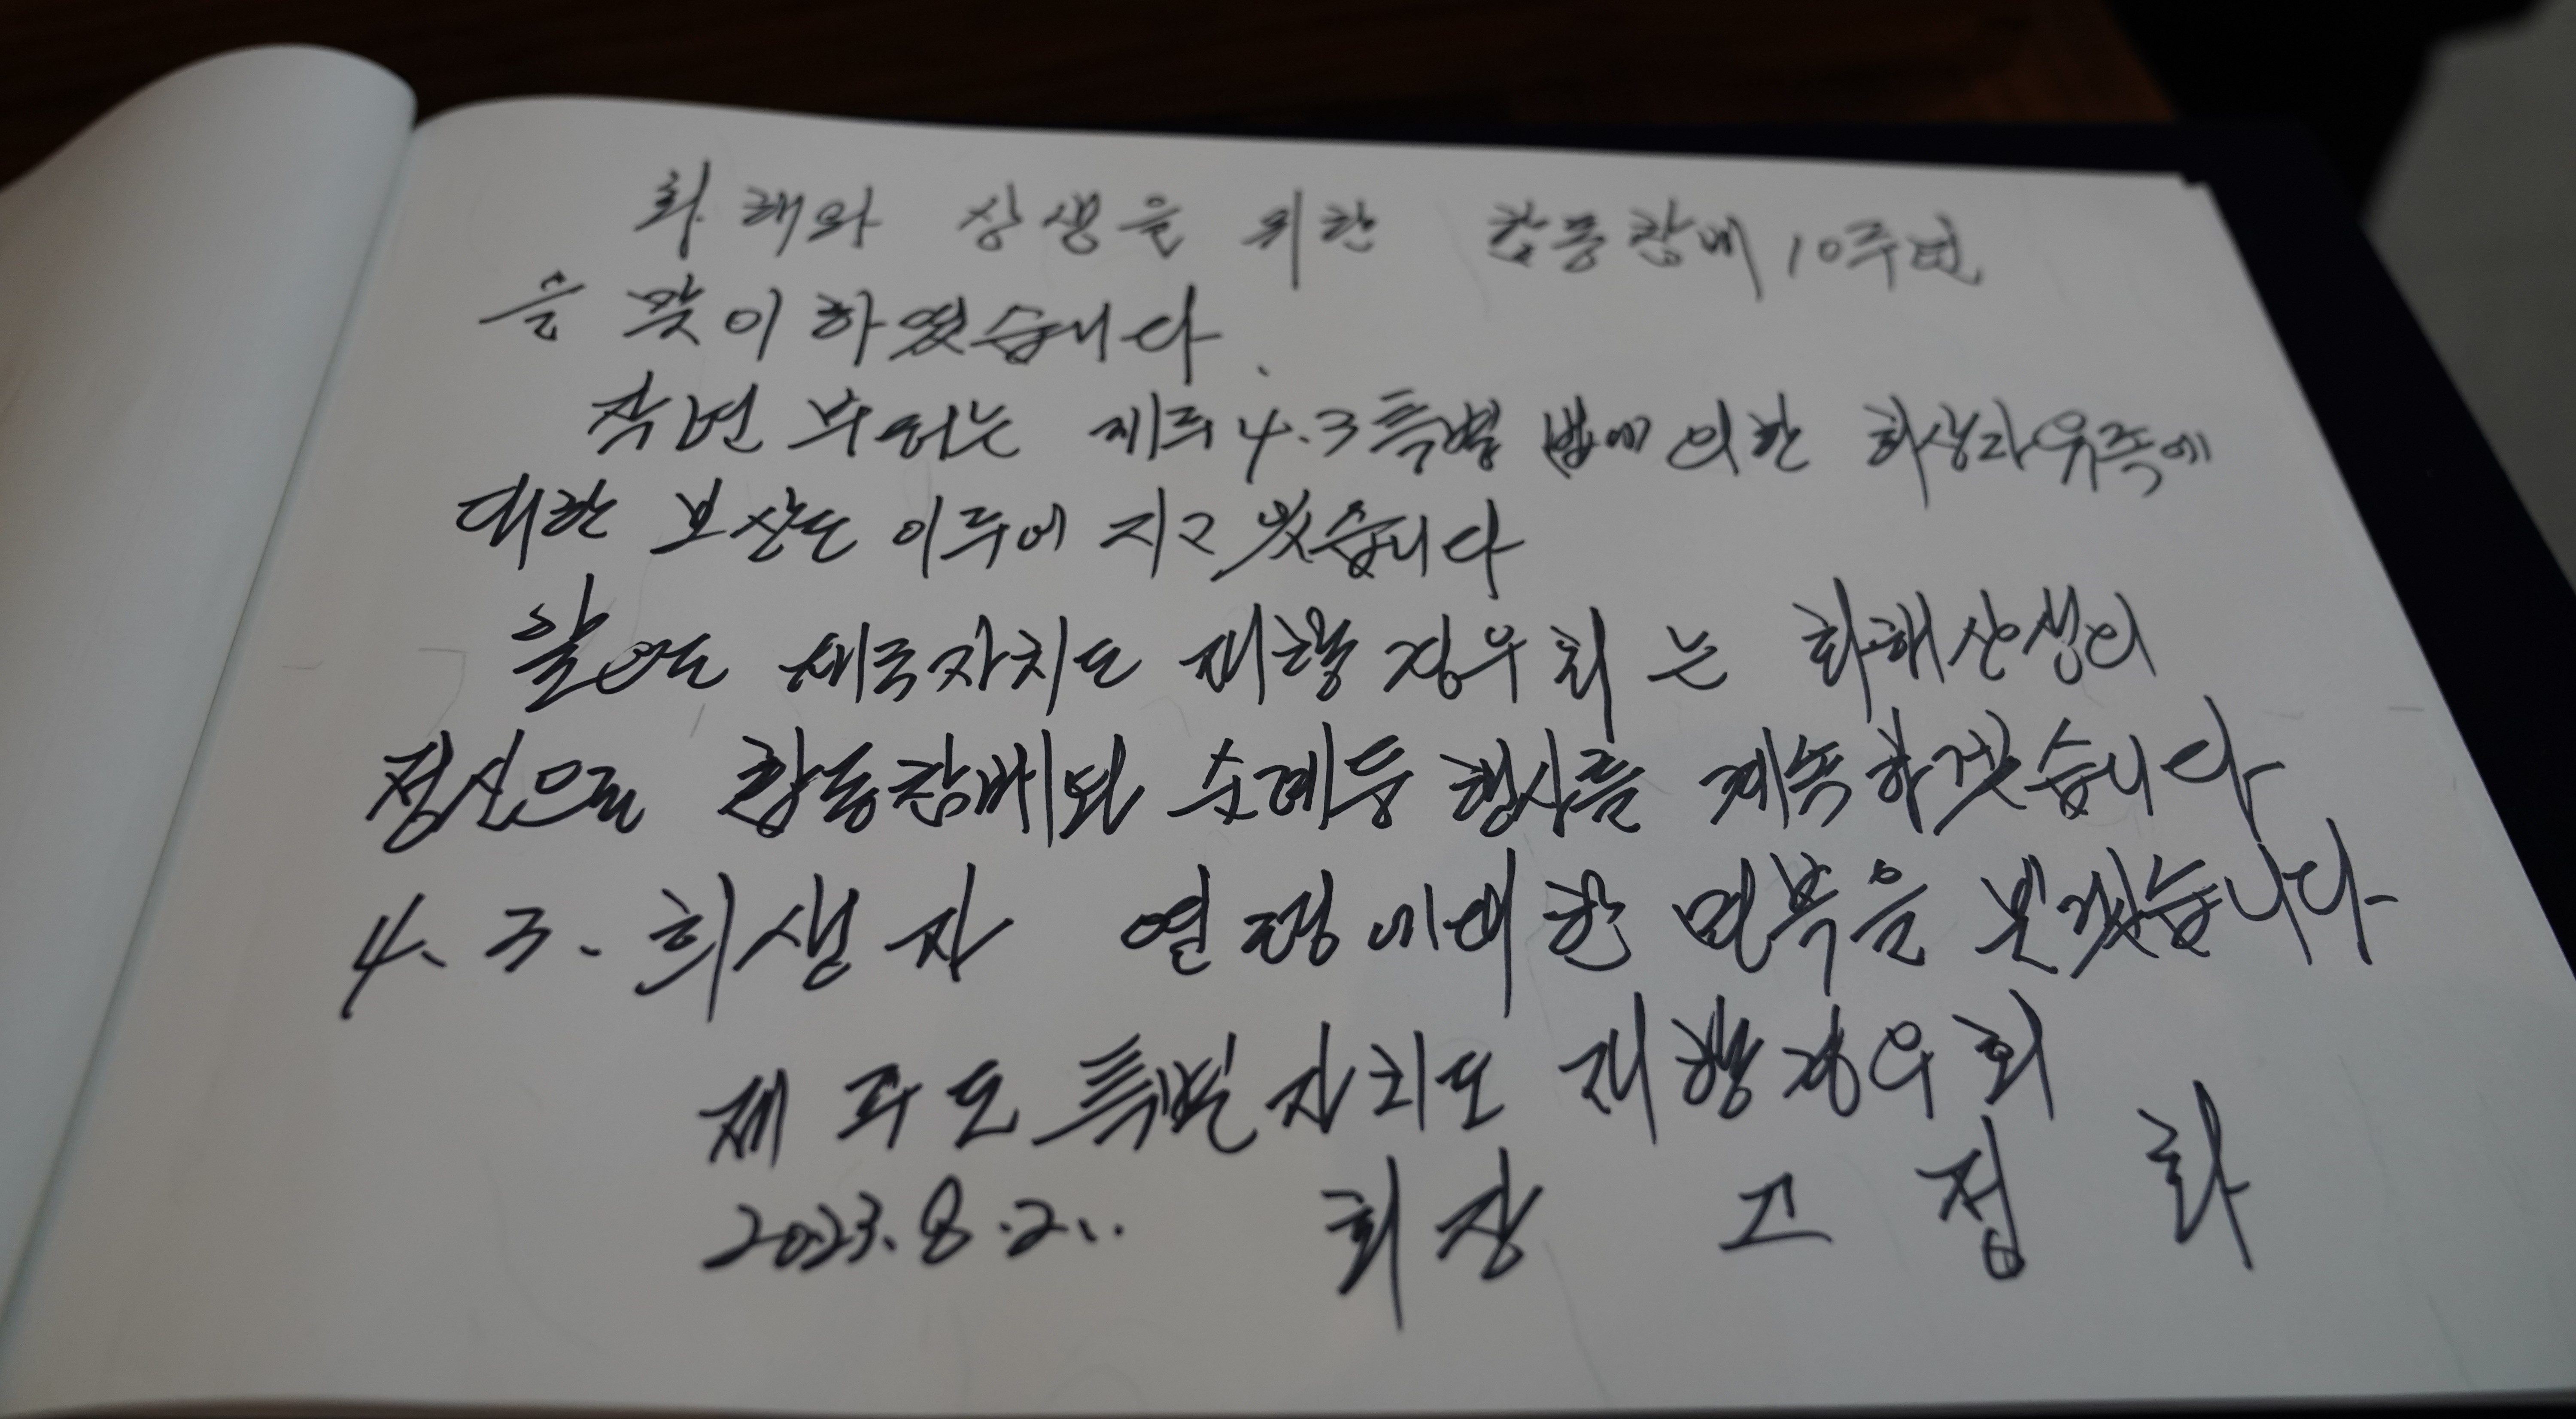 화해와 상생을 위한 합동참배 10주년
을 맞이 하였습니다.
작년 부터는 제주4.3특별법에 의한 희생자유족에
대한 보상도 이루어 지고 있습니다
앞으로도 자치도 재향경우회는 화해상생의
정신으로 합동참배와 순례등 행사를 계속하겠습니다
4.3.희생자 영령에대한 명복을 빌겠습니다
제주도특별자치도 재향경우회
2023.8.2.. 회장 고정화